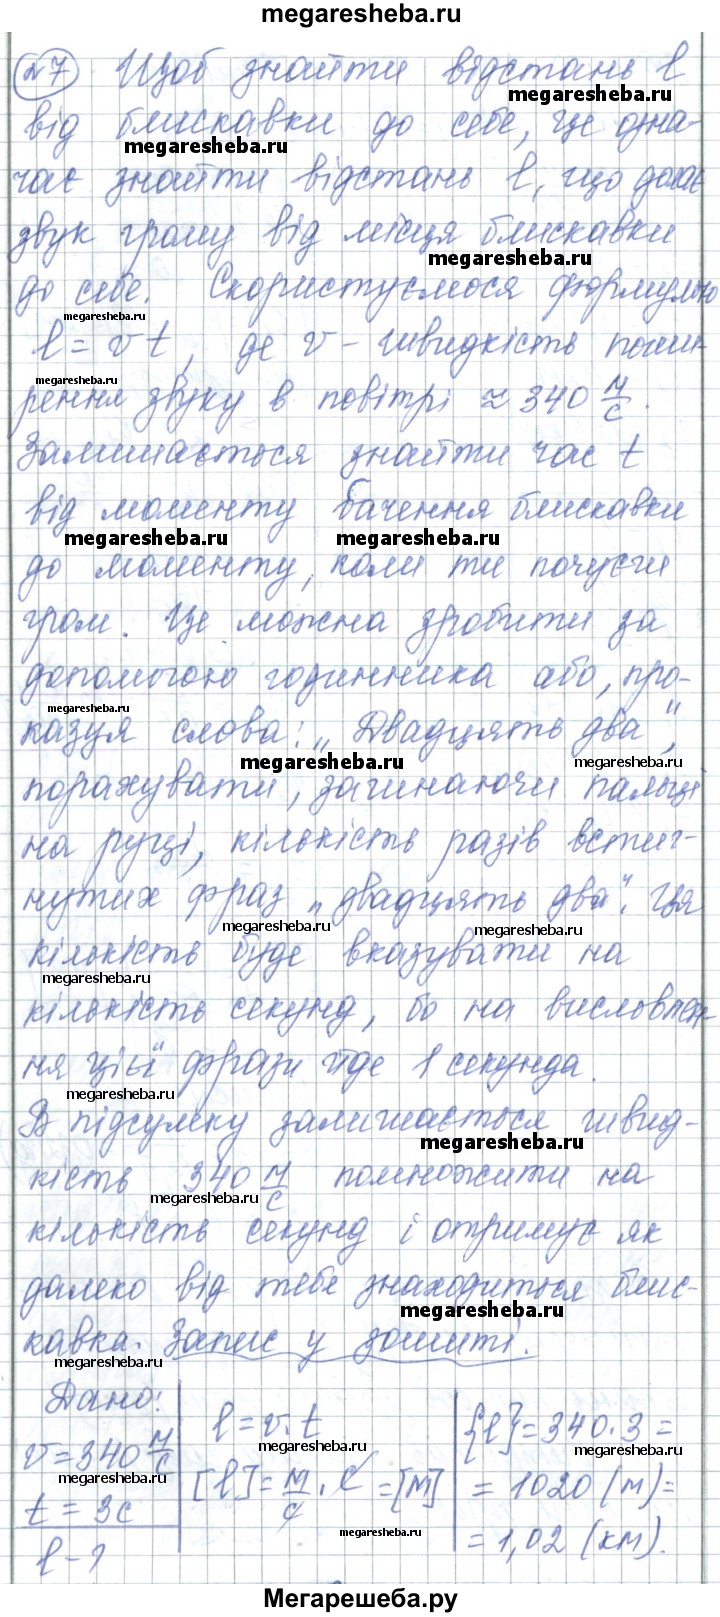 megaresheba.ru
№7 Щоб знайти відстань l
megaresheba.ru
від блискавки до себе, це озна-
megaresheba.ru
чає знайти відстань l, що долає
звук грому від місця блискавки
megaresheba.ru
до себе. Скористуємося формулою
megaresheba.ru
l = v t, де v - швидкість поши-
megaresheba.ru
рення звуку в повітрі ≈ 340 м/с.
Залишається знайти час t
від моменту бачення блискавки
megaresheba.ru megaresheba.ru
до моменту, коли ти почуєш
гром. Це можна зробити за
допомогою годинника або, про-
megaresheba.ru
казуя слова: „Двадцять два",
megaresheba.ru megaresheba.ru
порахувати, загинаючи пальці
на руці, кількість разів встиг-
нутих фраз „двадцять два". Ця
megaresheba.ru megaresheba.ru
кількість буде вказувати на
megaresheba.ru
кількість секунд, бо на висловлен-
megaresheba.ru
ня цієї фрази йде 1 секунда.
megaresheba.ru
В підсумку залишається швид-
megaresheba.ru
кість 340 м/с помножити на
megaresheba.ru
кількість секунд і отримує як
далеко від тебе знаходиться блис-
megaresheba.ru
кавка. Запис у зошиті.
megaresheba.ru
Дано:
v = 340 м/с
megaresheba.ru
t = 3с
l - ?
l = v · t
megaresheba.ru
[l] = м/с · с = [м]
megaresheba.ru
{l} = 340 · 3 =
megaresheba.ru
= 1020 (м) =
= 1,02 (км).
Мегарешеба.ру